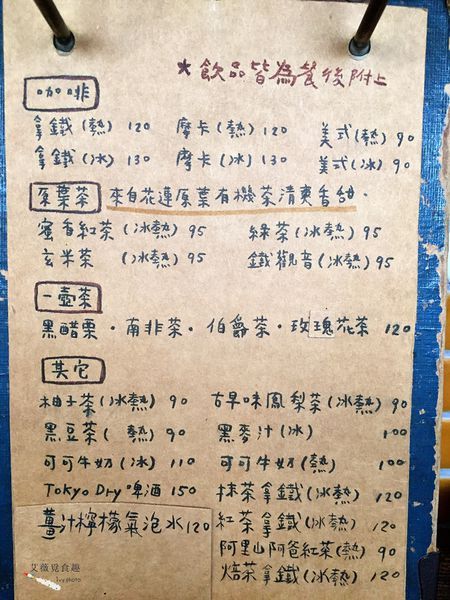 ★飲品皆為餐後附上
咖啡
拿鐵(熱) 120 摩卡(熱) 120 美式(熱) 90
拿鐵(冰) 130 摩卡(冰) 130 美式(冰) 90
原葉茶 來自花蓮原葉有機茶清爽香甜.
蜜香紅茶(冰熱) 95 綠茶(冰熱) 95
玄米茶 (冰熱) 95 鐵觀音(冰熱) 95
一壺茶
黑醋栗・南非茶・伯爵茶・玫瑰花茶 120
其它
柚子茶(冰熱) 90 古早味鳳梨茶(冰熱) 90
黑豆茶( 熱) 90 黑麥汁(冰) 100
可可牛奶(冰) 110 可可牛奶(熱) 100
Tokyo Dry 啤酒 150 抹茶拿鐵(冰熱) 120
薑汁檸檬氣泡水 120 紅茶拿鐵(冰熱) 120
阿里山阿爸紅茶(熱) 90
焙茶拿鐵(冰熱) 120
艾薇覓食趣
Ivy photo